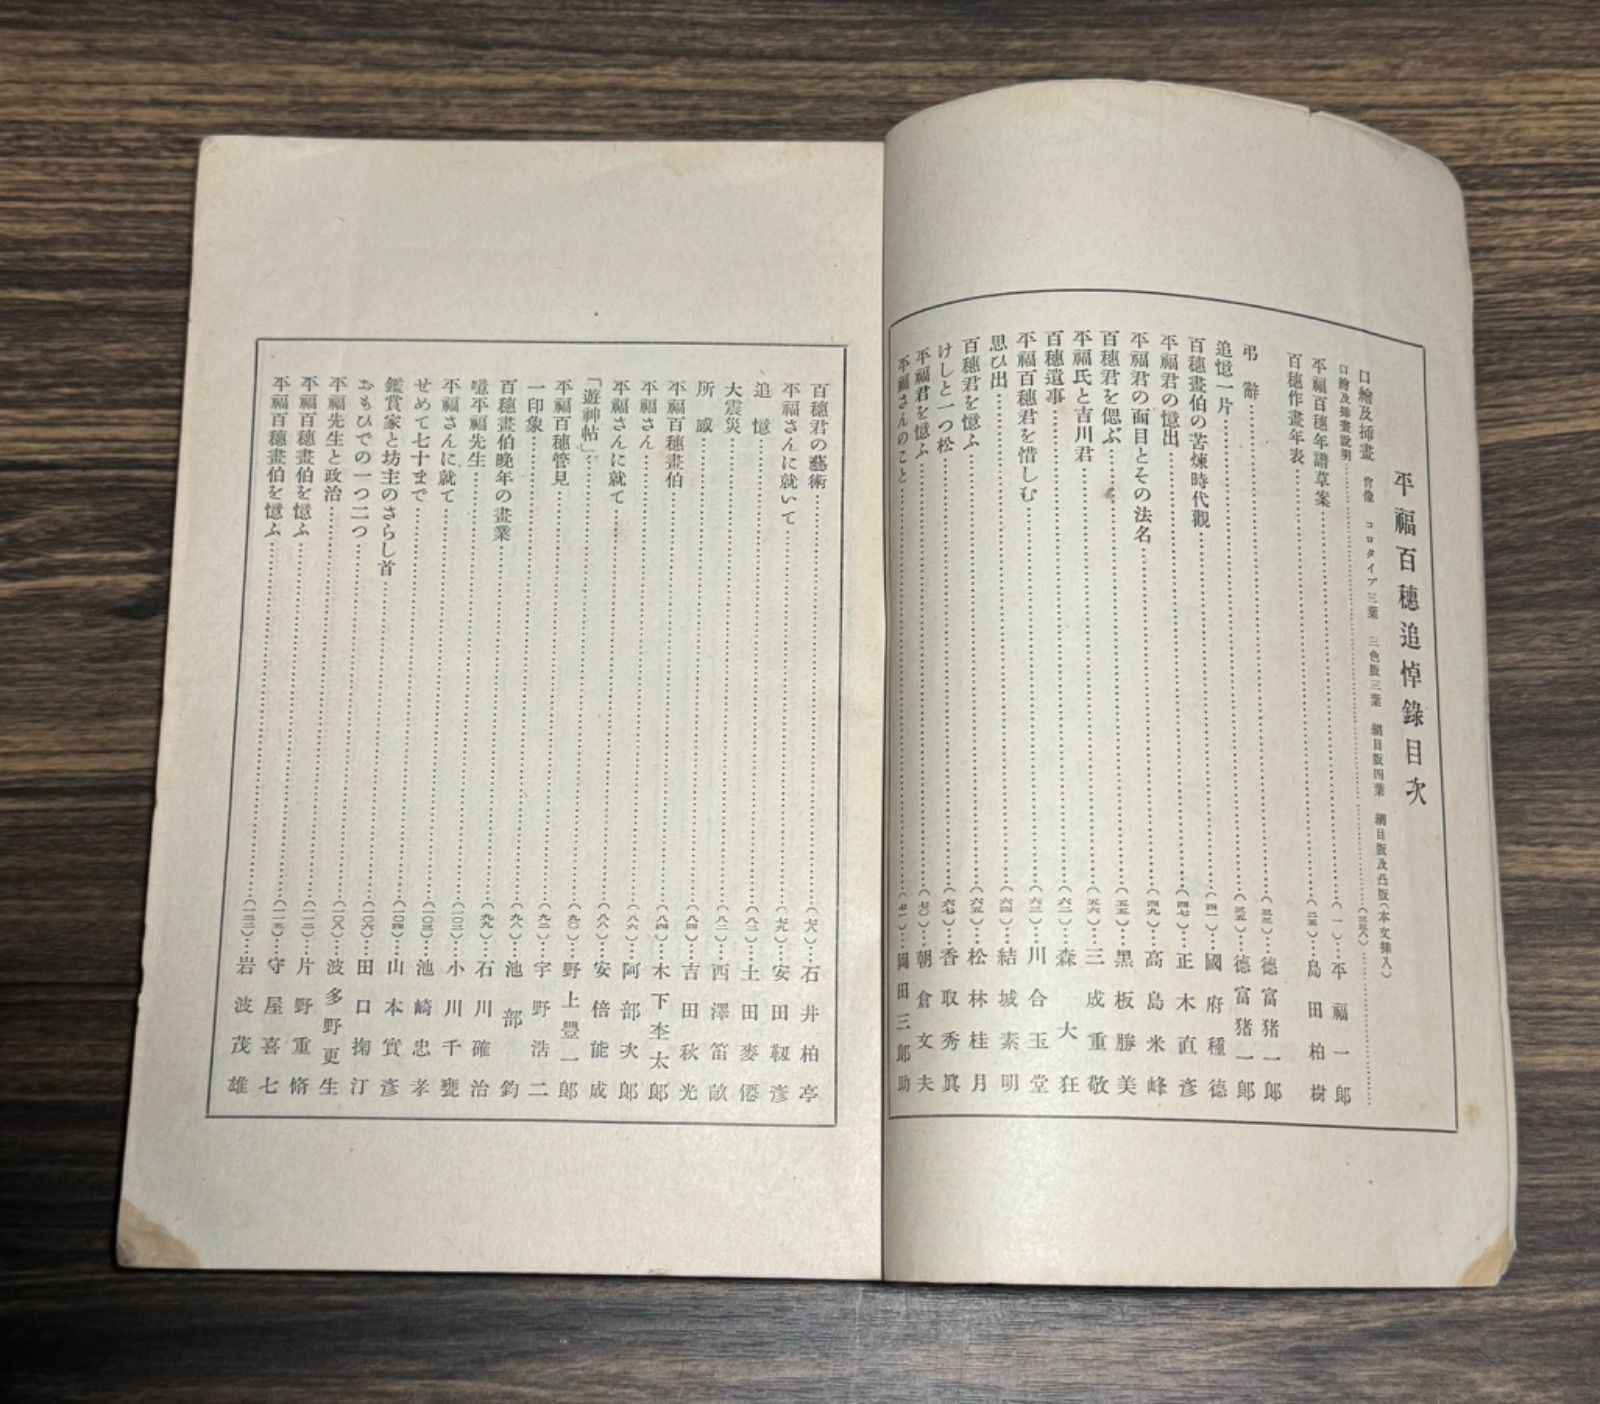 平福百穗追悼錄目次
口繪及挿畫 肖像 コロタイプ三葉 三色版三葉 網目版四葉 網目版及凸版(本文挿入)
口繪及挿畫說明……(三三八)……
平福百穗年譜草案……(一)…平福一郎
百穗作畫年表……(二五)…島田柏樹
弔辭……(三三)…德富猪一郎
追憶一片……(三五)…德富猪一郎
百穗畫伯の苦煉時代觀……(四一)…國府種德
平福君の憶出……(四七)…正木直彥
平福君の面目とその法名……(四九)…高島米峰
百穗君を偲ぶ……(五五)…黑板勝美
平福氏と吉川君……(五六)…三成重敬
百穗遺事……(六二)…森大狂
平福百穗君を惜しむ……(六三)…川合玉堂
思ひ出……(六四)…結城素明
百穗君を憶ふ……(六五)…松林桂月
けしと一つ松……(六七)…香取秀眞
平福君を憶ふ……(七〇)…朝倉文夫
平福さんのこと……(七一)…岡田三郎助
百穗君の藝術……(七六)…石井柏亭
平福さんに就いて……(七九)…安田靫彥
追憶……(八二)…土田麥僊
大震災……(八二)…西澤笛畝
所感……(八四)…吉田秋光
平福百穗畫伯……(八四)…木下杢太郎
平福さん……(八六)…阿部次郎
平福さんに就て……(八八)…安倍能成
「遊神帖」……(九〇)…野上豐一郎
平福百穗管見……(九二)…宇野浩二
一印象……(九八)…池部鈞
百穗畫伯晚年の畫業……(九九)…石川確治
噫平福先生……(一〇二)…小川千甕
平福さんに就て……(一〇三)…池崎忠孝
せめて七十まで……(一〇四)…山本實彥
鑑賞家と坊主のさらし首……(一〇六)…田口掬汀
おもひでの一つ二つ……(一〇八)…波多野更生
平福先生と政治……(一一二)…片野重脩
平福百穗畫伯を憶ふ……(一一五)…守屋喜七
平福百穗畫伯を憶ふ……(一二二)…岩波茂雄